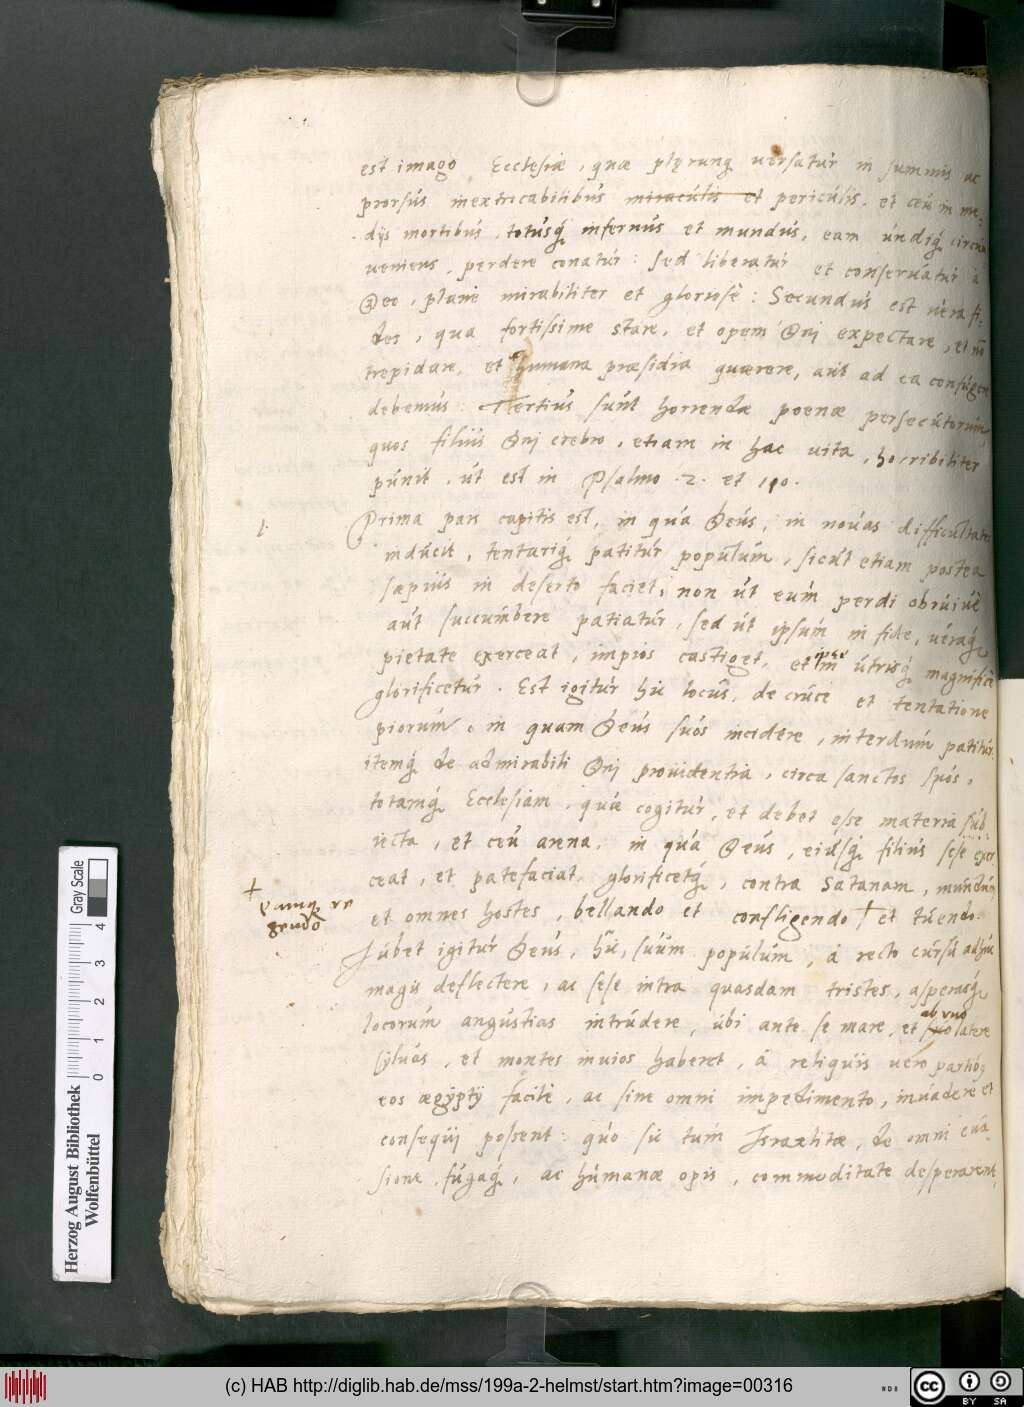 est imago Ecclesiæ, quæ plęrunq versatur in summis ac
prorsus inextricabilibus miraculis et periculis. et ceu in me-
dijs mortibus, totusq́ infernus et mundus, eam undiq́ circum
ueniens, perdere conatur: sed liberatur et conseruatur à
Deo, planè mirabiliter et gloriosè: Secundus est uera fi-
des, qua fortissime stare, et opem Dni expectare, et nō
trepidare, et humana præsidia quærere, aut ad ea confugere
debemus. Tertius sunt horrendæ poenæ persecutorum,
quos filius Dni crebro, etiam in hac uita, horribiliter
punit, ut est in Psalmo .2. et 110.
1.
Prima pars capitis est, in qua Deus, in nouas difficultates
inducit, tentariq́ patitur populum, sicut etiam postea
sæpius in deserto faciet, non ut eum perdi obruiue
aut succumbere patiatur, sed ut ipsum in fide, ueraq́
pietate exerceat, impios castiget, et ipse in utrisq́ magnificè
glorificetur. Est igitur hic locus, de cruce et tentatione
piorum, in quam Deus suos incidere, interdum patitur,
itemq́ de admirabili Dni prouidentia, circa sanctos suos,
totamq́ Ecclesiam, quæ cogitur, et debet esse materia sub
iecta, et ceu arena, in qua Deus, eiusq́ filius sese exer
ceat, et patefaciat, glorificetq́, contra Satanam, mundum
et omnes hostes, bellando et confligendo † et tuendo.
†
Iubet igitur Deus, hīc, suum populum, à recto cursu adhuc
magis deflectere, ac sese intra quasdam tristes, asperasq́
locorum angustias intrudere, ubi ante se mare, et suo ab uno latere
syluas, et montes inuios haberet, à reliquis uero partibq
eos ægyptij facile, ac sine omni impedimento, inuadere et
consequi possent: quo sic tum Israelitæ, de omni eua-
sione, fugaq́, ac humanæ opis, commoditate desperarent,
Herzog August Bibliothek
Wolfenbüttel
0 1 2 3 4
Gray Scale
(c) HAB http://diglib.hab.de/mss/199a-2-helmst/start.htm?image=00316
cc BY SA